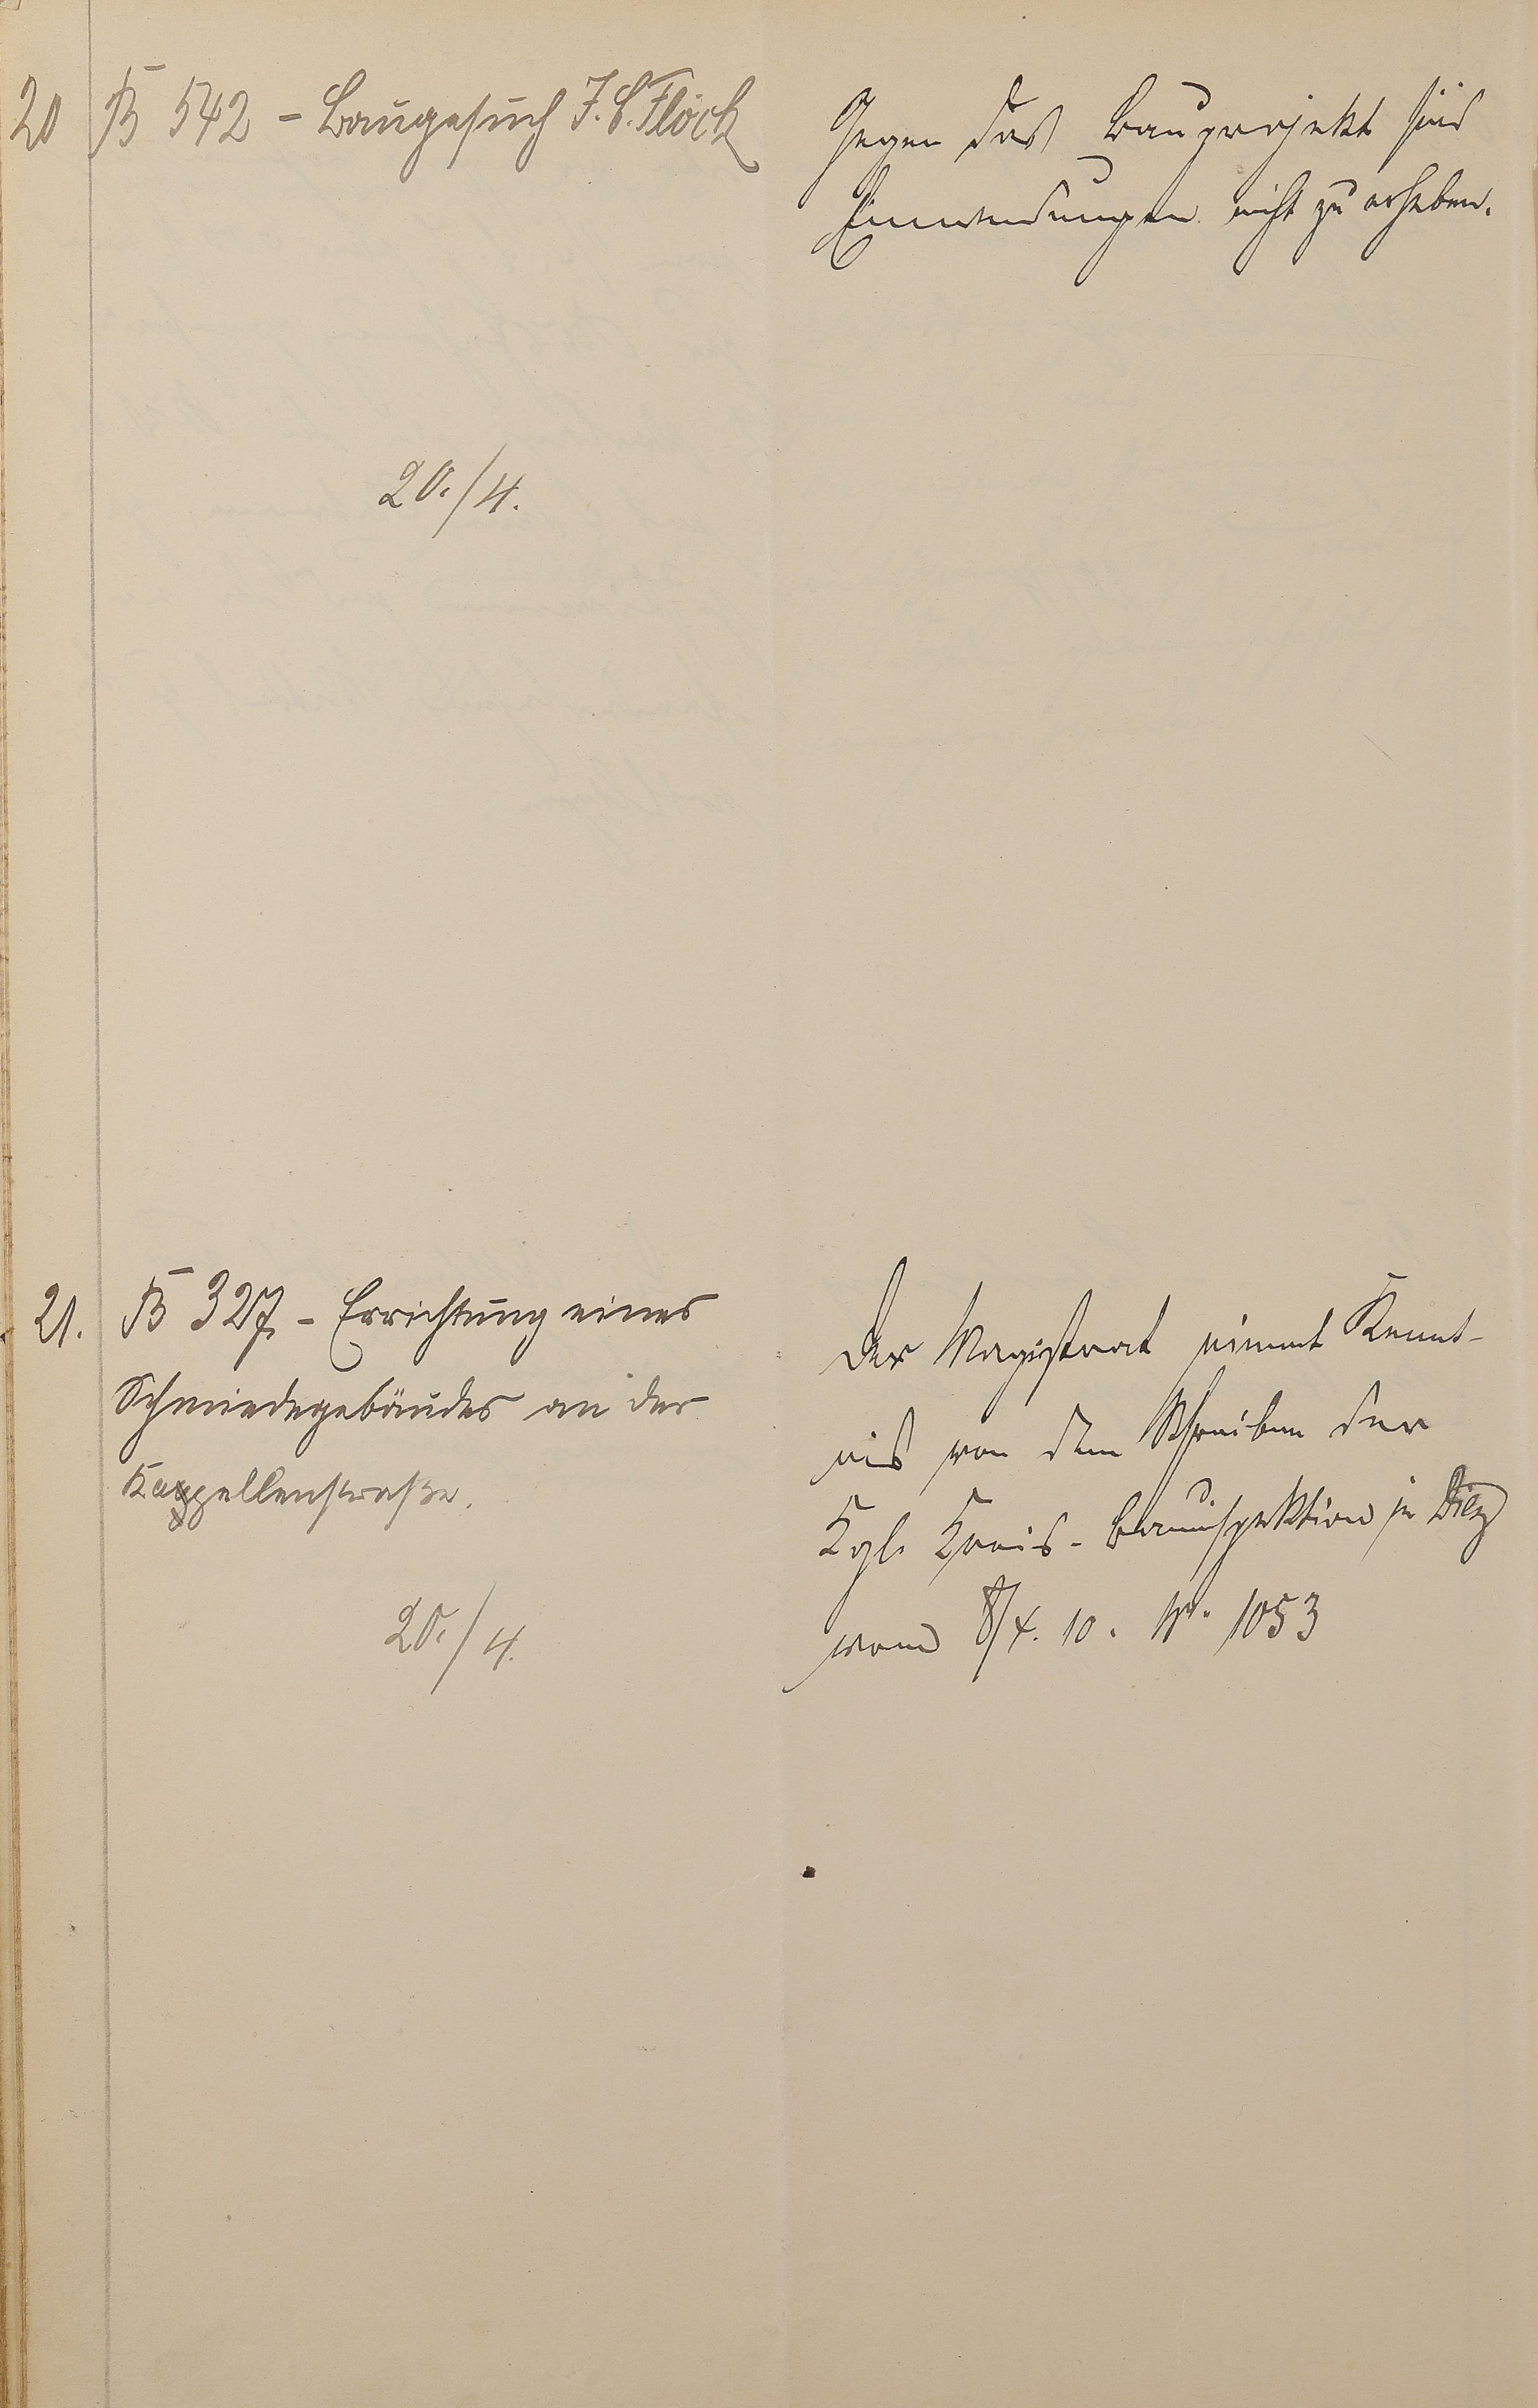 20 B 542 - Baugesuch J. C. Flöck
Gegen das Bauprojekt sind
Einwendungen nicht zu erheben.
20./4.
21. B 327 - Errichtung eines
Schmiedegebäudes an der
Kappellenstraße.
20./4.
Der Magistrat nimmt Kennt-
nis von dem Schreiben der
Kgl. Kreis-Bauinspektion in Diez
vom 8/4. 10. Nr. 1053